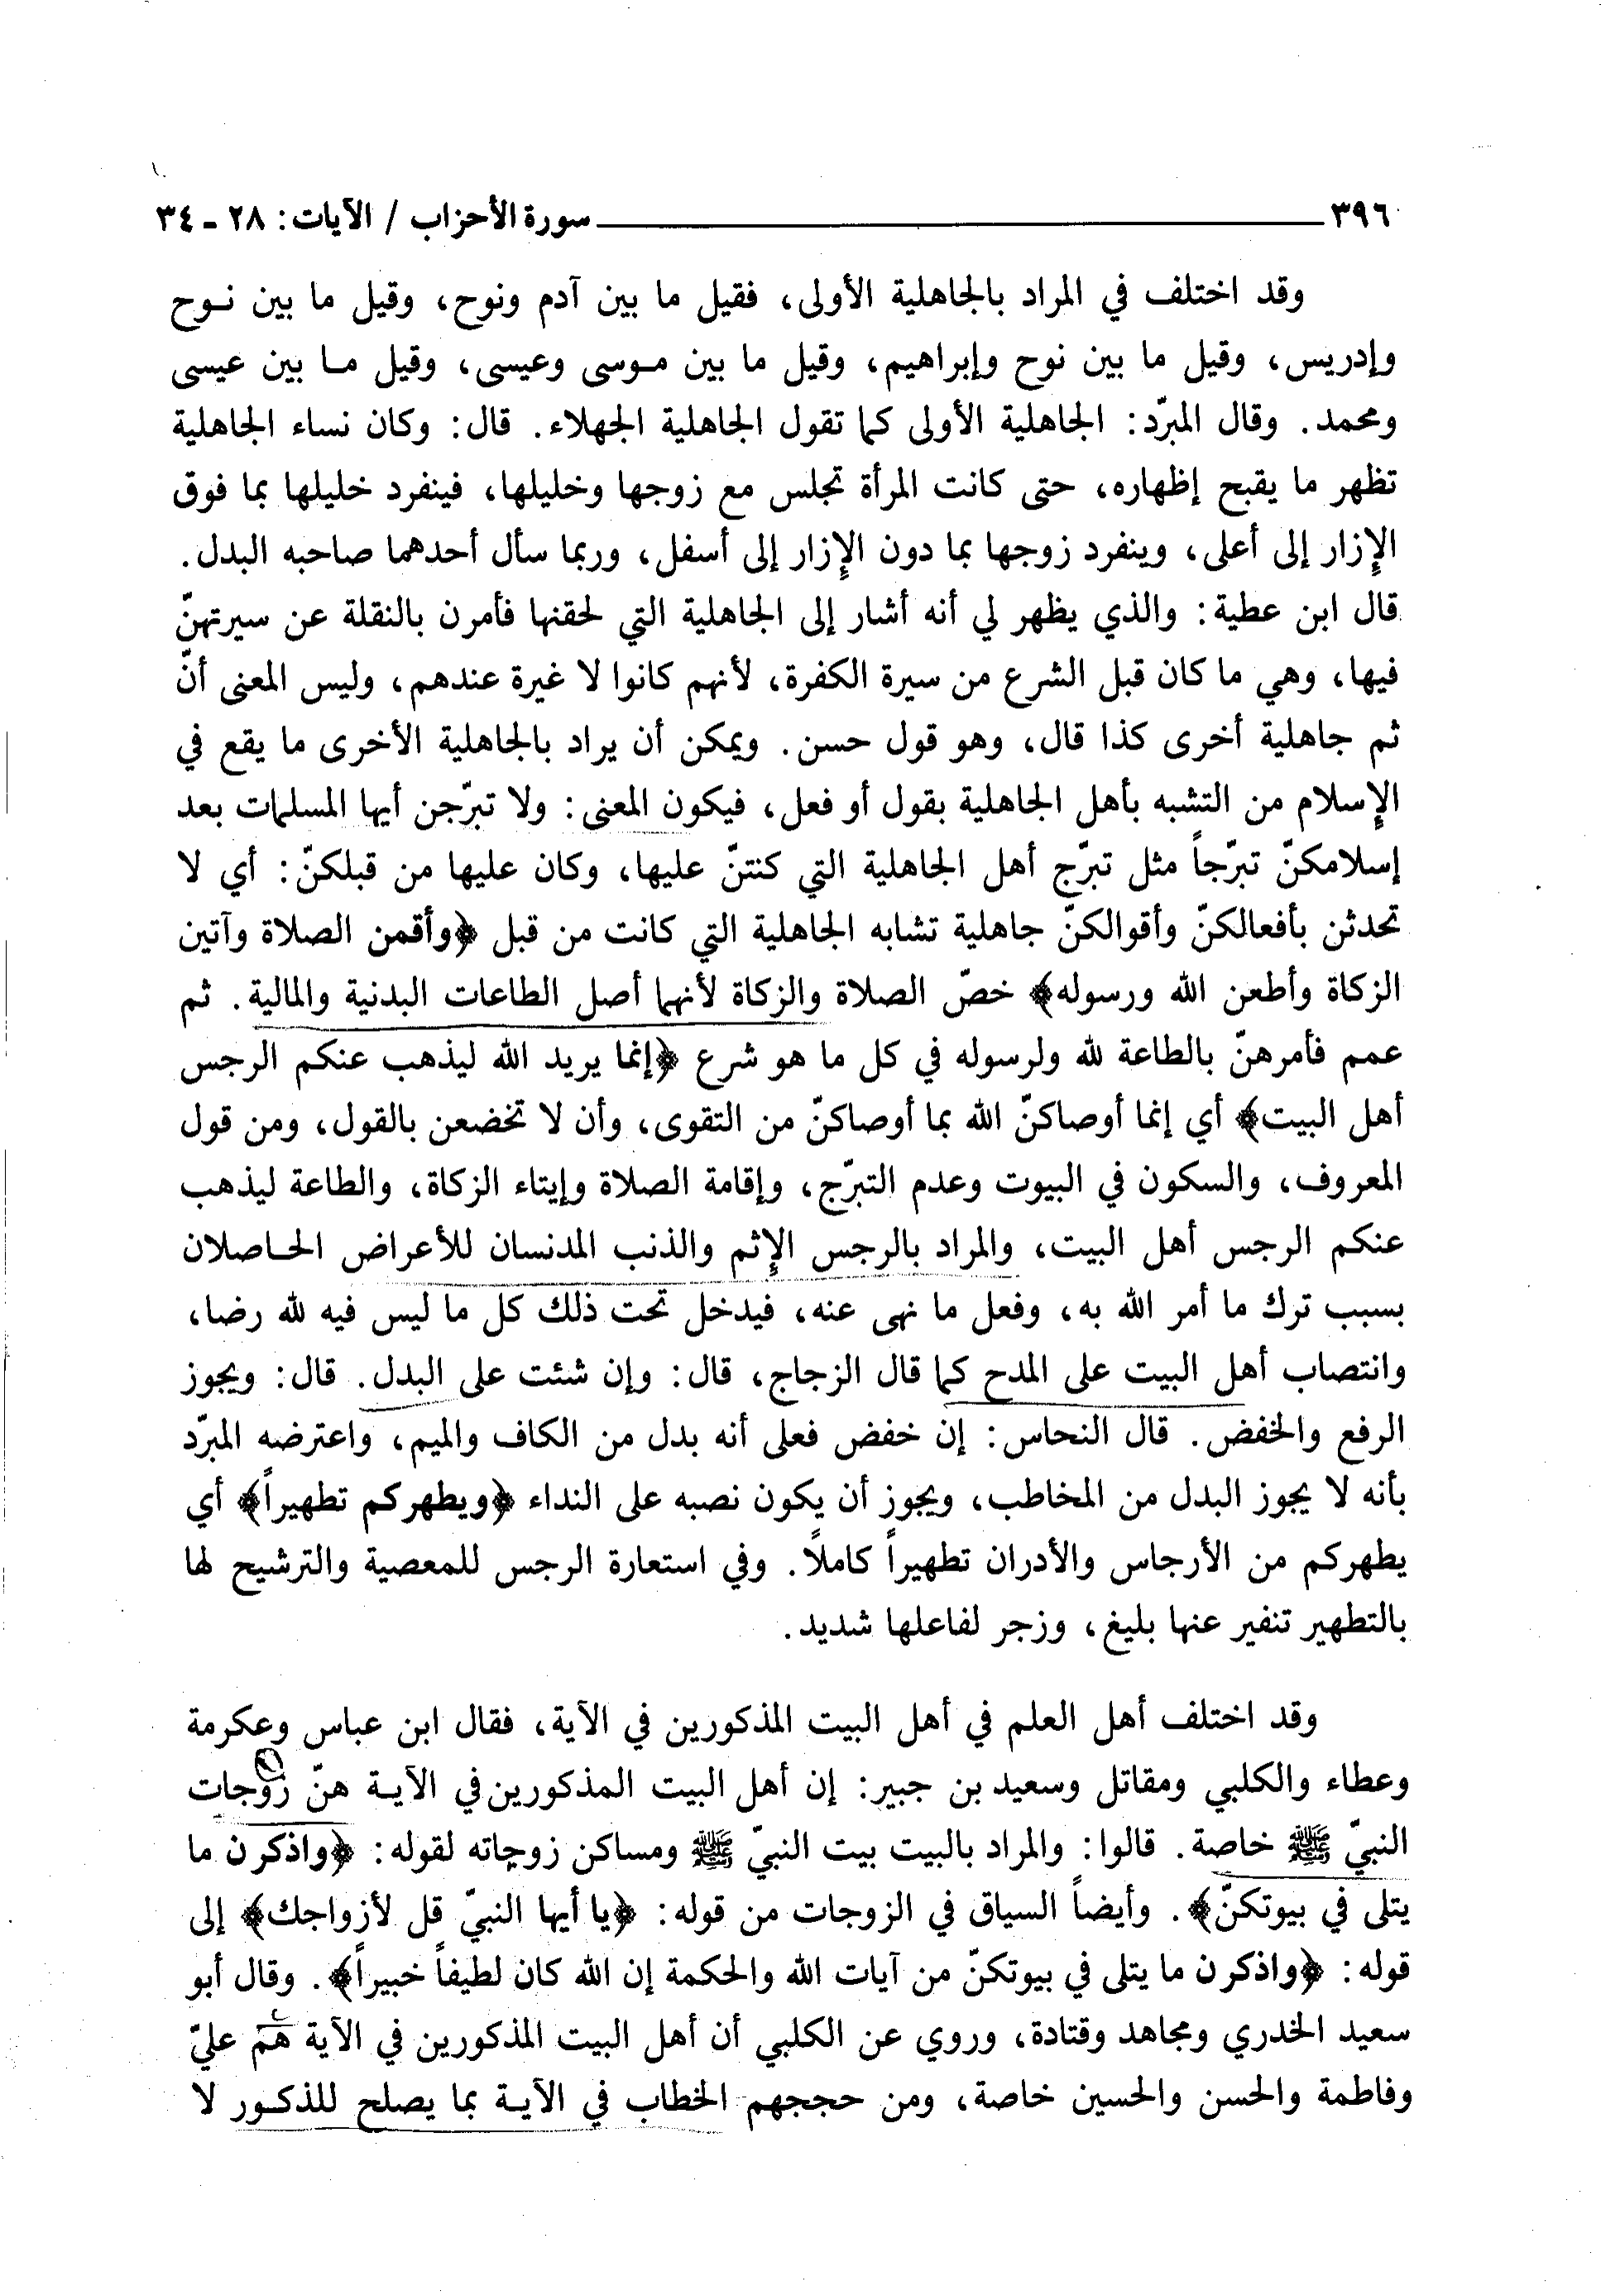 ٣٩٦ سورة الأحزاب / الآيات: ٢٨ ـ ٣٤
وقد اختلف في المراد بالجاهلية الأولى، فقيل ما بين آدم ونوح، وقيل ما بين نوح
وإدريس، وقيل ما بين نوح وإبراهيم، وقيل ما بين موسى وعيسى، وقيل ما بين عيسى
ومحمد. وقال المبرّد: الجاهلية الأولى كما تقول الجاهلية الجهلاء. قال: وكان نساء الجاهلية
تظهر ما يقبح إظهاره، حتى كانت المرأة تجلس مع زوجها وخليلها، فينفرد خليلها بما فوق
الإِزار إلى أعلى، وينفرد زوجها بما دون الإِزار إلى أسفل، وربما سأل أحدهما صاحبه البدل.
قال ابن عطية: والذي يظهر لي أنه أشار إلى الجاهلية التي لحقنها فأمرن بالنقلة عن سيرتهنّ
فيها، وهي ما كان قبل الشرع من سيرة الكفرة، لأنهم كانوا لا غيرة عندهم، وليس المعنى أنّ
ثم جاهلية أخرى كذا قال، وهو قول حسن. ويمكن أن يراد بالجاهلية الأخرى ما يقع في
الإِسلام من التشبه بأهل الجاهلية بقول أو فعل، فيكون المعنى: ولا تبرّجن أيها المسلمات بعد
إسلامكنّ تبرّجاً مثل تبرّج أهل الجاهلية التي كنتنّ عليها، وكان عليها من قبلكنّ: أي لا
تحدثن بأفعالكنّ وأقوالكنّ جاهلية تشابه الجاهلية التي كانت من قبل ﴿وأقمن الصلاة وآتين
الزكاة وأطعن الله ورسوله﴾ خصّ الصلاة والزكاة لأنهما أصل الطاعات البدنية والمالية. ثم
عمم فأمرهنّ بالطاعة لله ولرسوله في كل ما هو شرع ﴿إنما يريد الله ليذهب عنكم الرجس
أهل البيت﴾ أي إنما أوصاكنّ الله بما أوصاكنّ من التقوى، وأن لا تخضعن بالقول، ومن قول
المعروف، والسكون في البيوت وعدم التبرّج، وإقامة الصلاة وإيتاء الزكاة، والطاعة ليذهب
عنكم الرجس أهل البيت، والمراد بالرجس الإِثم والذنب المدنسان للأعراض الحاصلان
بسبب ترك ما أمر الله به، وفعل ما نهى عنه، فيدخل تحت ذلك كل ما ليس فيه لله رضا،
وانتصاب أهل البيت على المدح كما قال الزجاج، قال: وإن شئت على البدل. قال: ويجوز
الرفع والخفض. قال النحاس: إن خفض فعلى أنه بدل من الكاف والميم، واعترضه المبرّد
بأنه لا يجوز البدل من المخاطب، ويجوز أن يكون نصبه على النداء ﴿ويطهركم تطهيراً﴾ أي
يطهركم من الأرجاس والأدران تطهيراً كاملاً. وفي استعارة الرجس للمعصية والترشيح لها
بالتطهير تنفير عنها بليغ، وزجر لفاعلها شديد.
وقد اختلف أهل العلم في أهل البيت المذكورين في الآية، فقال ابن عباس وعكرمة
وعطاء والكلبي ومقاتل وسعيد بن جبير: إن أهل البيت المذكورين في الآية هنّ زوجات
النبيّ ﷺ خاصة. قالوا: والمراد بالبيت بيت النبيّ ﷺ ومساكن زوجاته لقوله: ﴿واذكرن ما
يتلى في بيوتكنّ﴾. وأيضاً السياق في الزوجات من قوله: ﴿يا أيها النبيّ قل لأزواجك﴾ إلى
قوله: ﴿واذكرن ما يتلى في بيوتكنّ من آيات الله والحكمة إن الله كان لطيفاً خبيراً﴾. وقال أبو
سعيد الخدري ومجاهد وقتادة، وروي عن الكلبي أن أهل البيت المذكورين في الآية هم عليّ
وفاطمة والحسن والحسين خاصة، ومن حججهم الخطاب في الآية بما يصلح للذكور لا